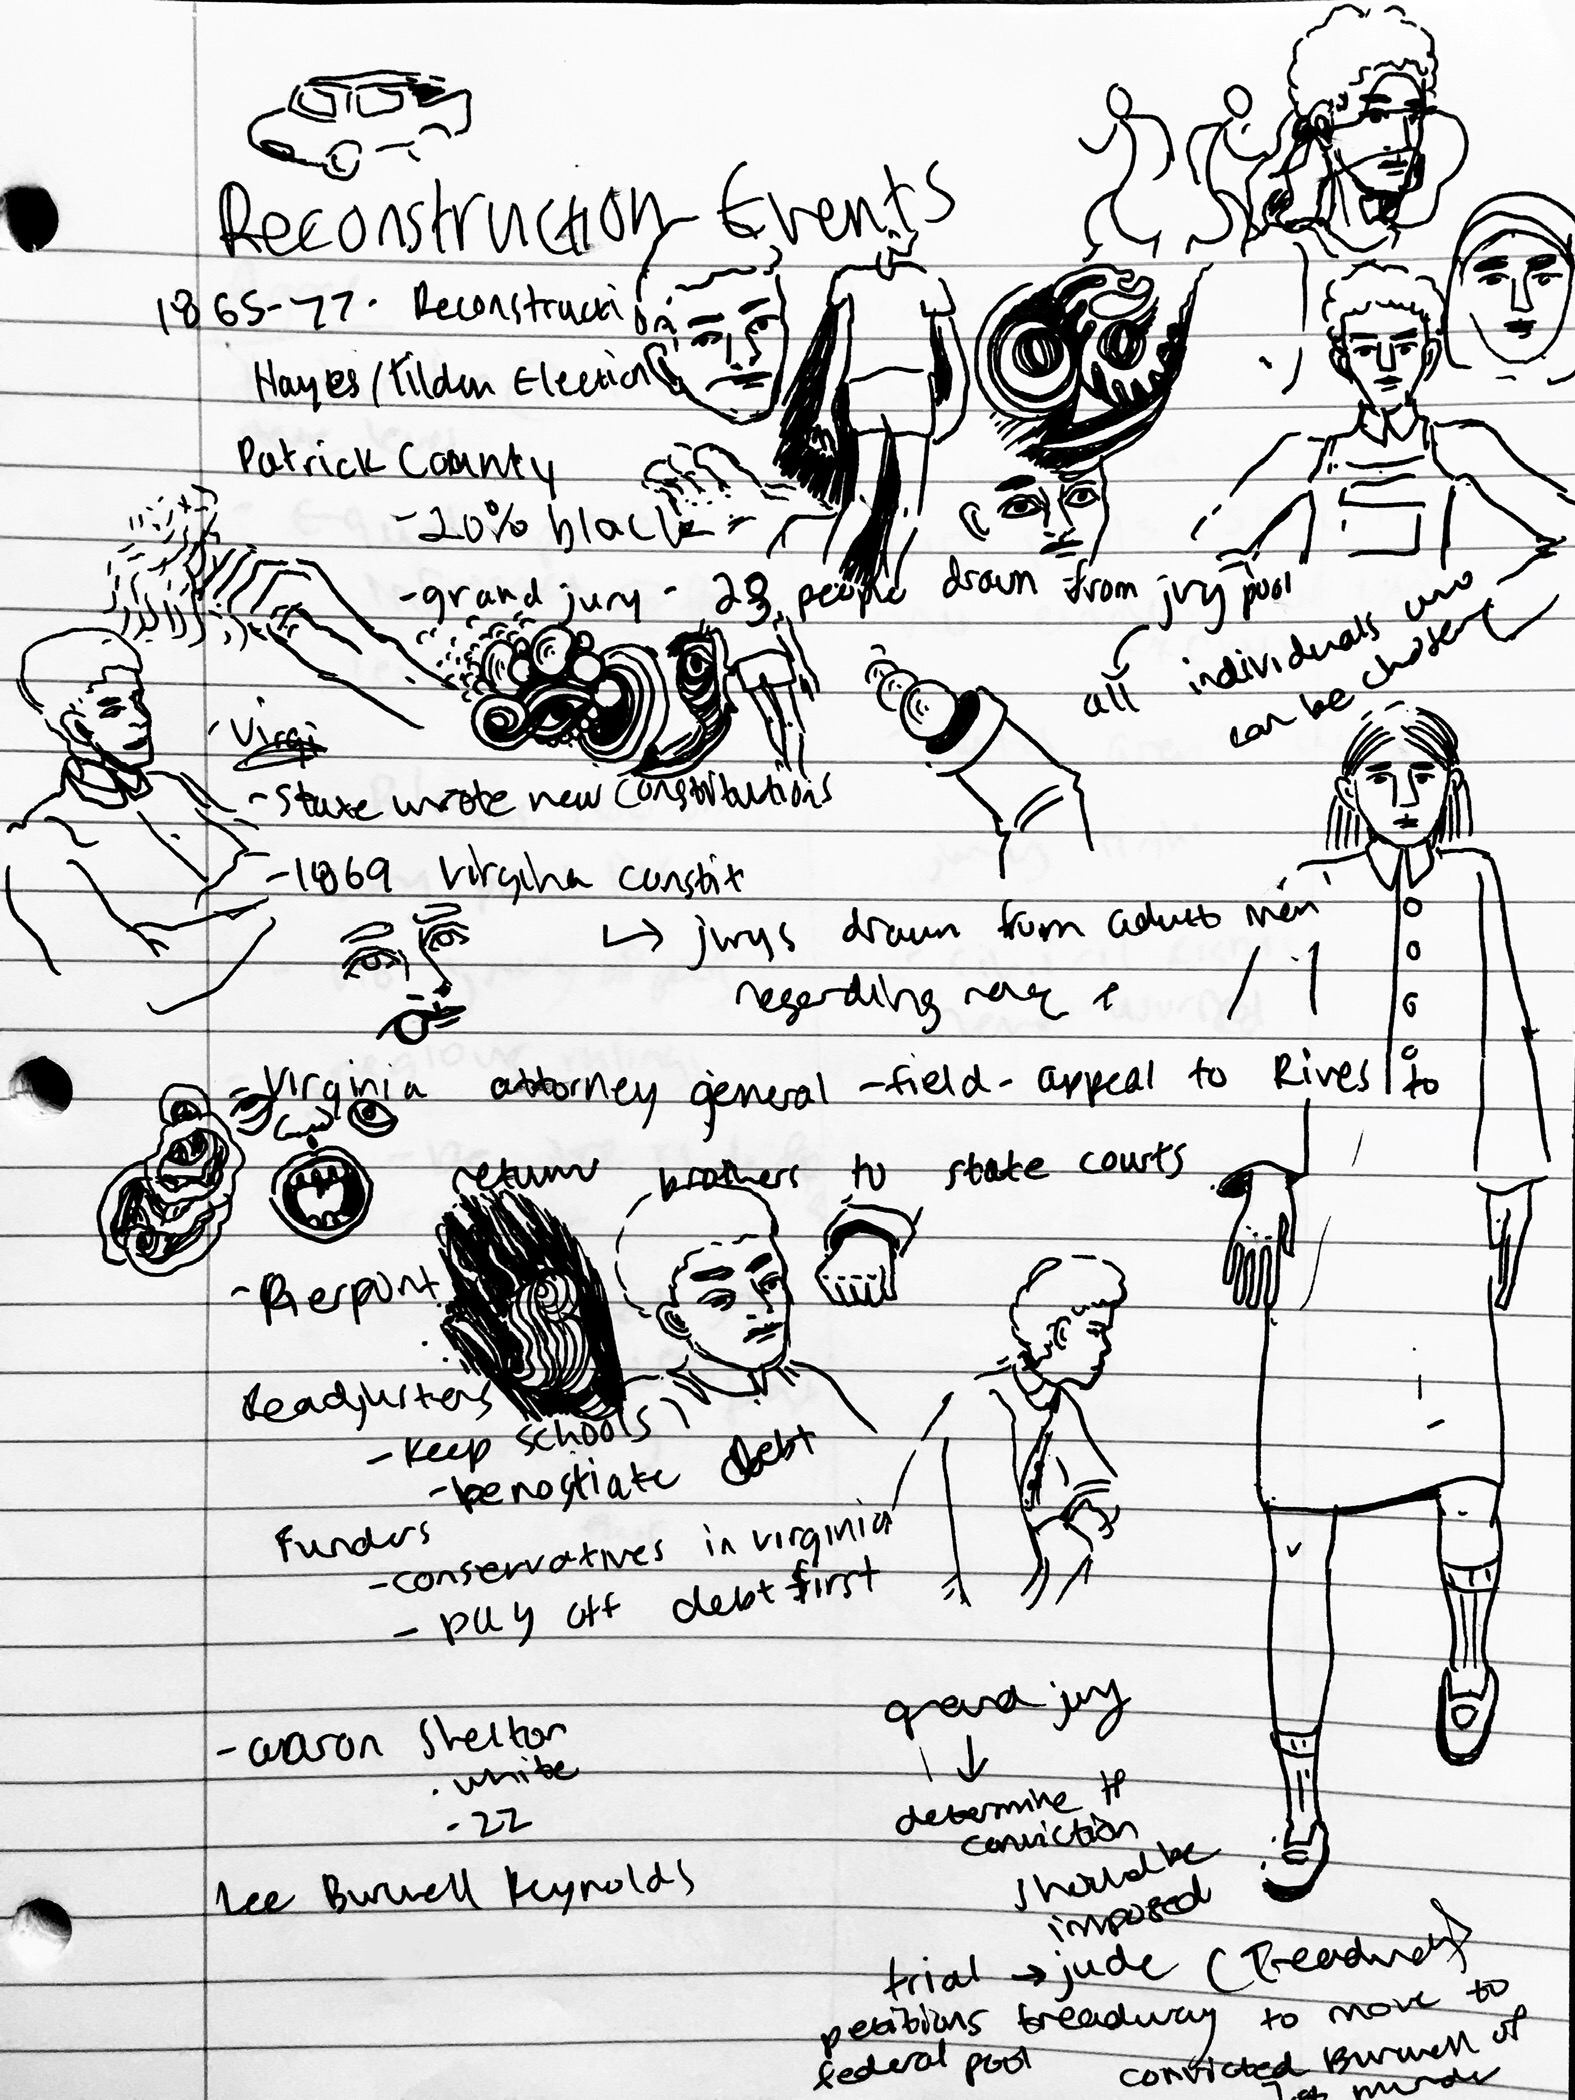 Reconstruction Events
1865-77. Reconstruction
Hayes/Tilden Election
Patrick County
-20% black
-grand jury - 23 people drawn from jury pool
all individuals who
can be chosen
-Virgi
-State wrote new constitutions
-1869 Virginia constit
↳ jurys drawn from adult men
regarding race
-Virginia attorney general -field- appeal to Rives to
return brothers to state courts
-Pierpont
Readjusters
-keep schools
-benogtiate debt
Funders
-conservatives in virginia
- pay off debt first
-aaron Shelton
.white
-22
Lee Burwell Reynolds
grand jury
↓
determine if
conviction
should be
imposed
trial → jude (Treadway)
petitions treadway to move to
federal pool
convicted Burwell of